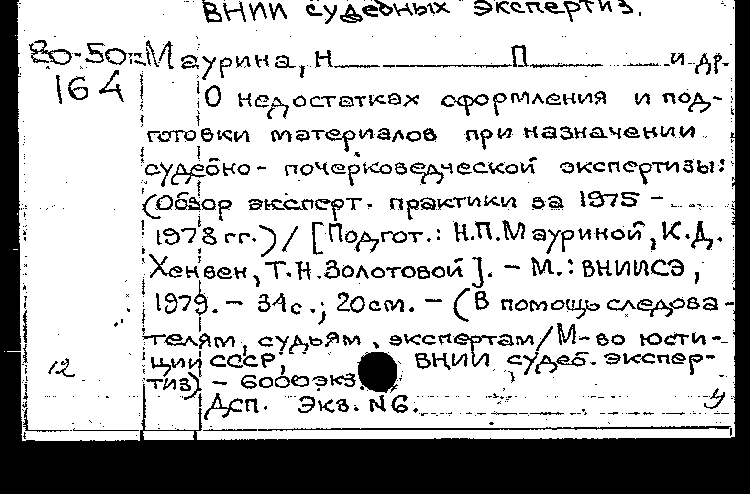 ВНИИ судебных экспертиз.
80-50= Маурина, Н П и др.
164 О недостатках оформления и под-
готовки материалов при назначении
судебно-почерковедческой экспертизы:
(Обзор эксперт. практики за 1975 -
1978 гг.) / [Подгот.: Н.П.Мауриной, К.Д.
Т.Н.Золотовой]. - М.: ВНИИСЭ,
1979. - 31с.; 20см. - (В помощь следова-
телям, судьям, экспертам/М-во юсти-
ции СССР, ВНИИ судеб. экспер-
12 тиз) - 6000экз.
ДСП. Экз. N6. У